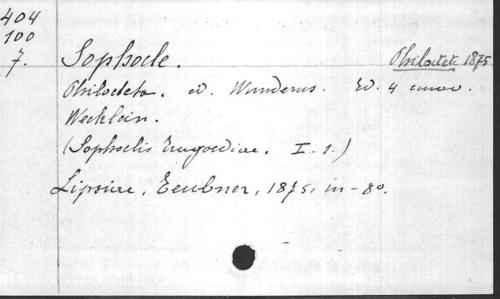 404
100
7.
Sophocle. Philoctète 1875
Philocteta. ed. Wunderus. Ed. 4 curav.
Wecklein.
(Sophoclis tragoediae. I. 1.)
Lipsiae, Teubner, 1875, in-8o.